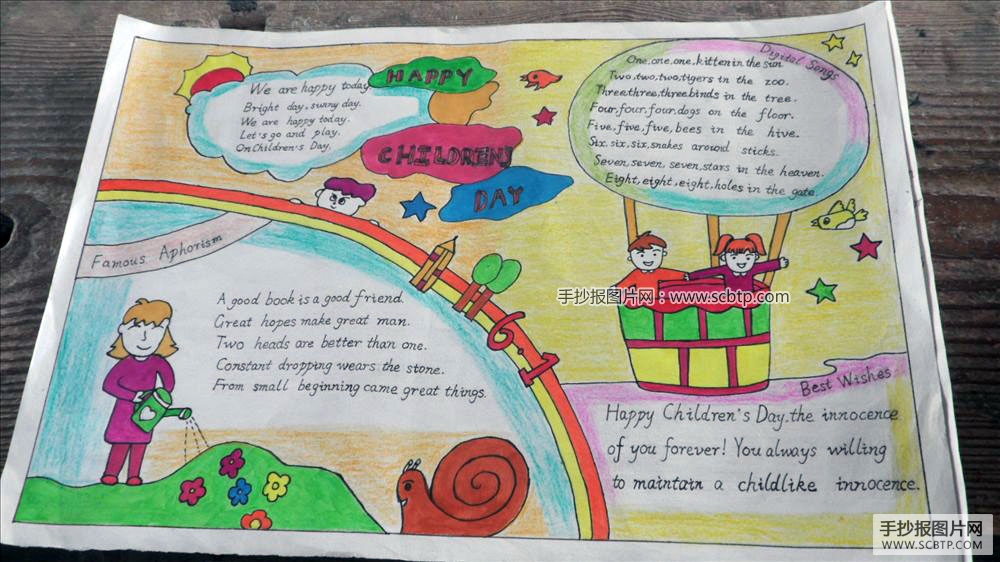 We are happy today
Bright day, sunny day.
We are happy today.
Let's go and play.
On Children's Day,
HAPPY
CHILDREN'S
DAY
Digital Songs
One,one,one,kitten in the sun
Two,two,two,tigers in the zoo.
Three,three,three,birds in the tree.
Four,four,four,dogs on the floor.
Five,five,five,bees in the hive.
Six,six,six,snakes around sticks.
Seven,seven,seven,stars in the heaven.
Eight,eight,eight,holes in the gate.
Famous Aphorism
A good book is a good friend.
Great hopes make great man.
Two heads are better than one.
Constant dropping wears the stone.
From small beginning came great things.
6.1
手抄报图片网：www.scbtp.com
Best Wishes
Happy Children's Day.the innocence
of you forever! You always willing
to maintain a childlike innocence.
手抄报图片网
WWW.SCBTP.COM